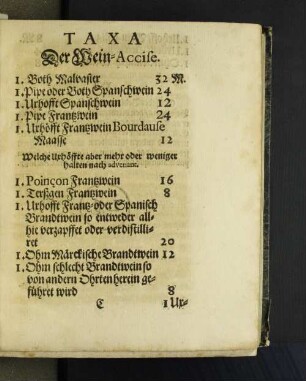 TAXA
Der Wein-Accise.
1. Both Malvasier 32 M.
1. Pipe oder Both Spanschwein 24
1. Uxhofft Spanschwein 12
1. Pipe Frantzwein 24
1. Uxhöfft Frantzwein Bourdause
Maasse 12
Welche Uxhöffte aber mehr oder weniger
halten nach advenant.
1. Poinçon Frantzwein 16
1. Terßgen Frantzwein 8
1. Uxhofft Frantz-oder Spanisch
Brandtwein so entweder all-
hie verzapffet oder verdistilli-
ret 20
1. Ohm Märckische Brandtwein 12
1. Ohm schlecht Brandtwein so
von andern Ohrten herein ge-
führet wird 8
C 1 Ux-